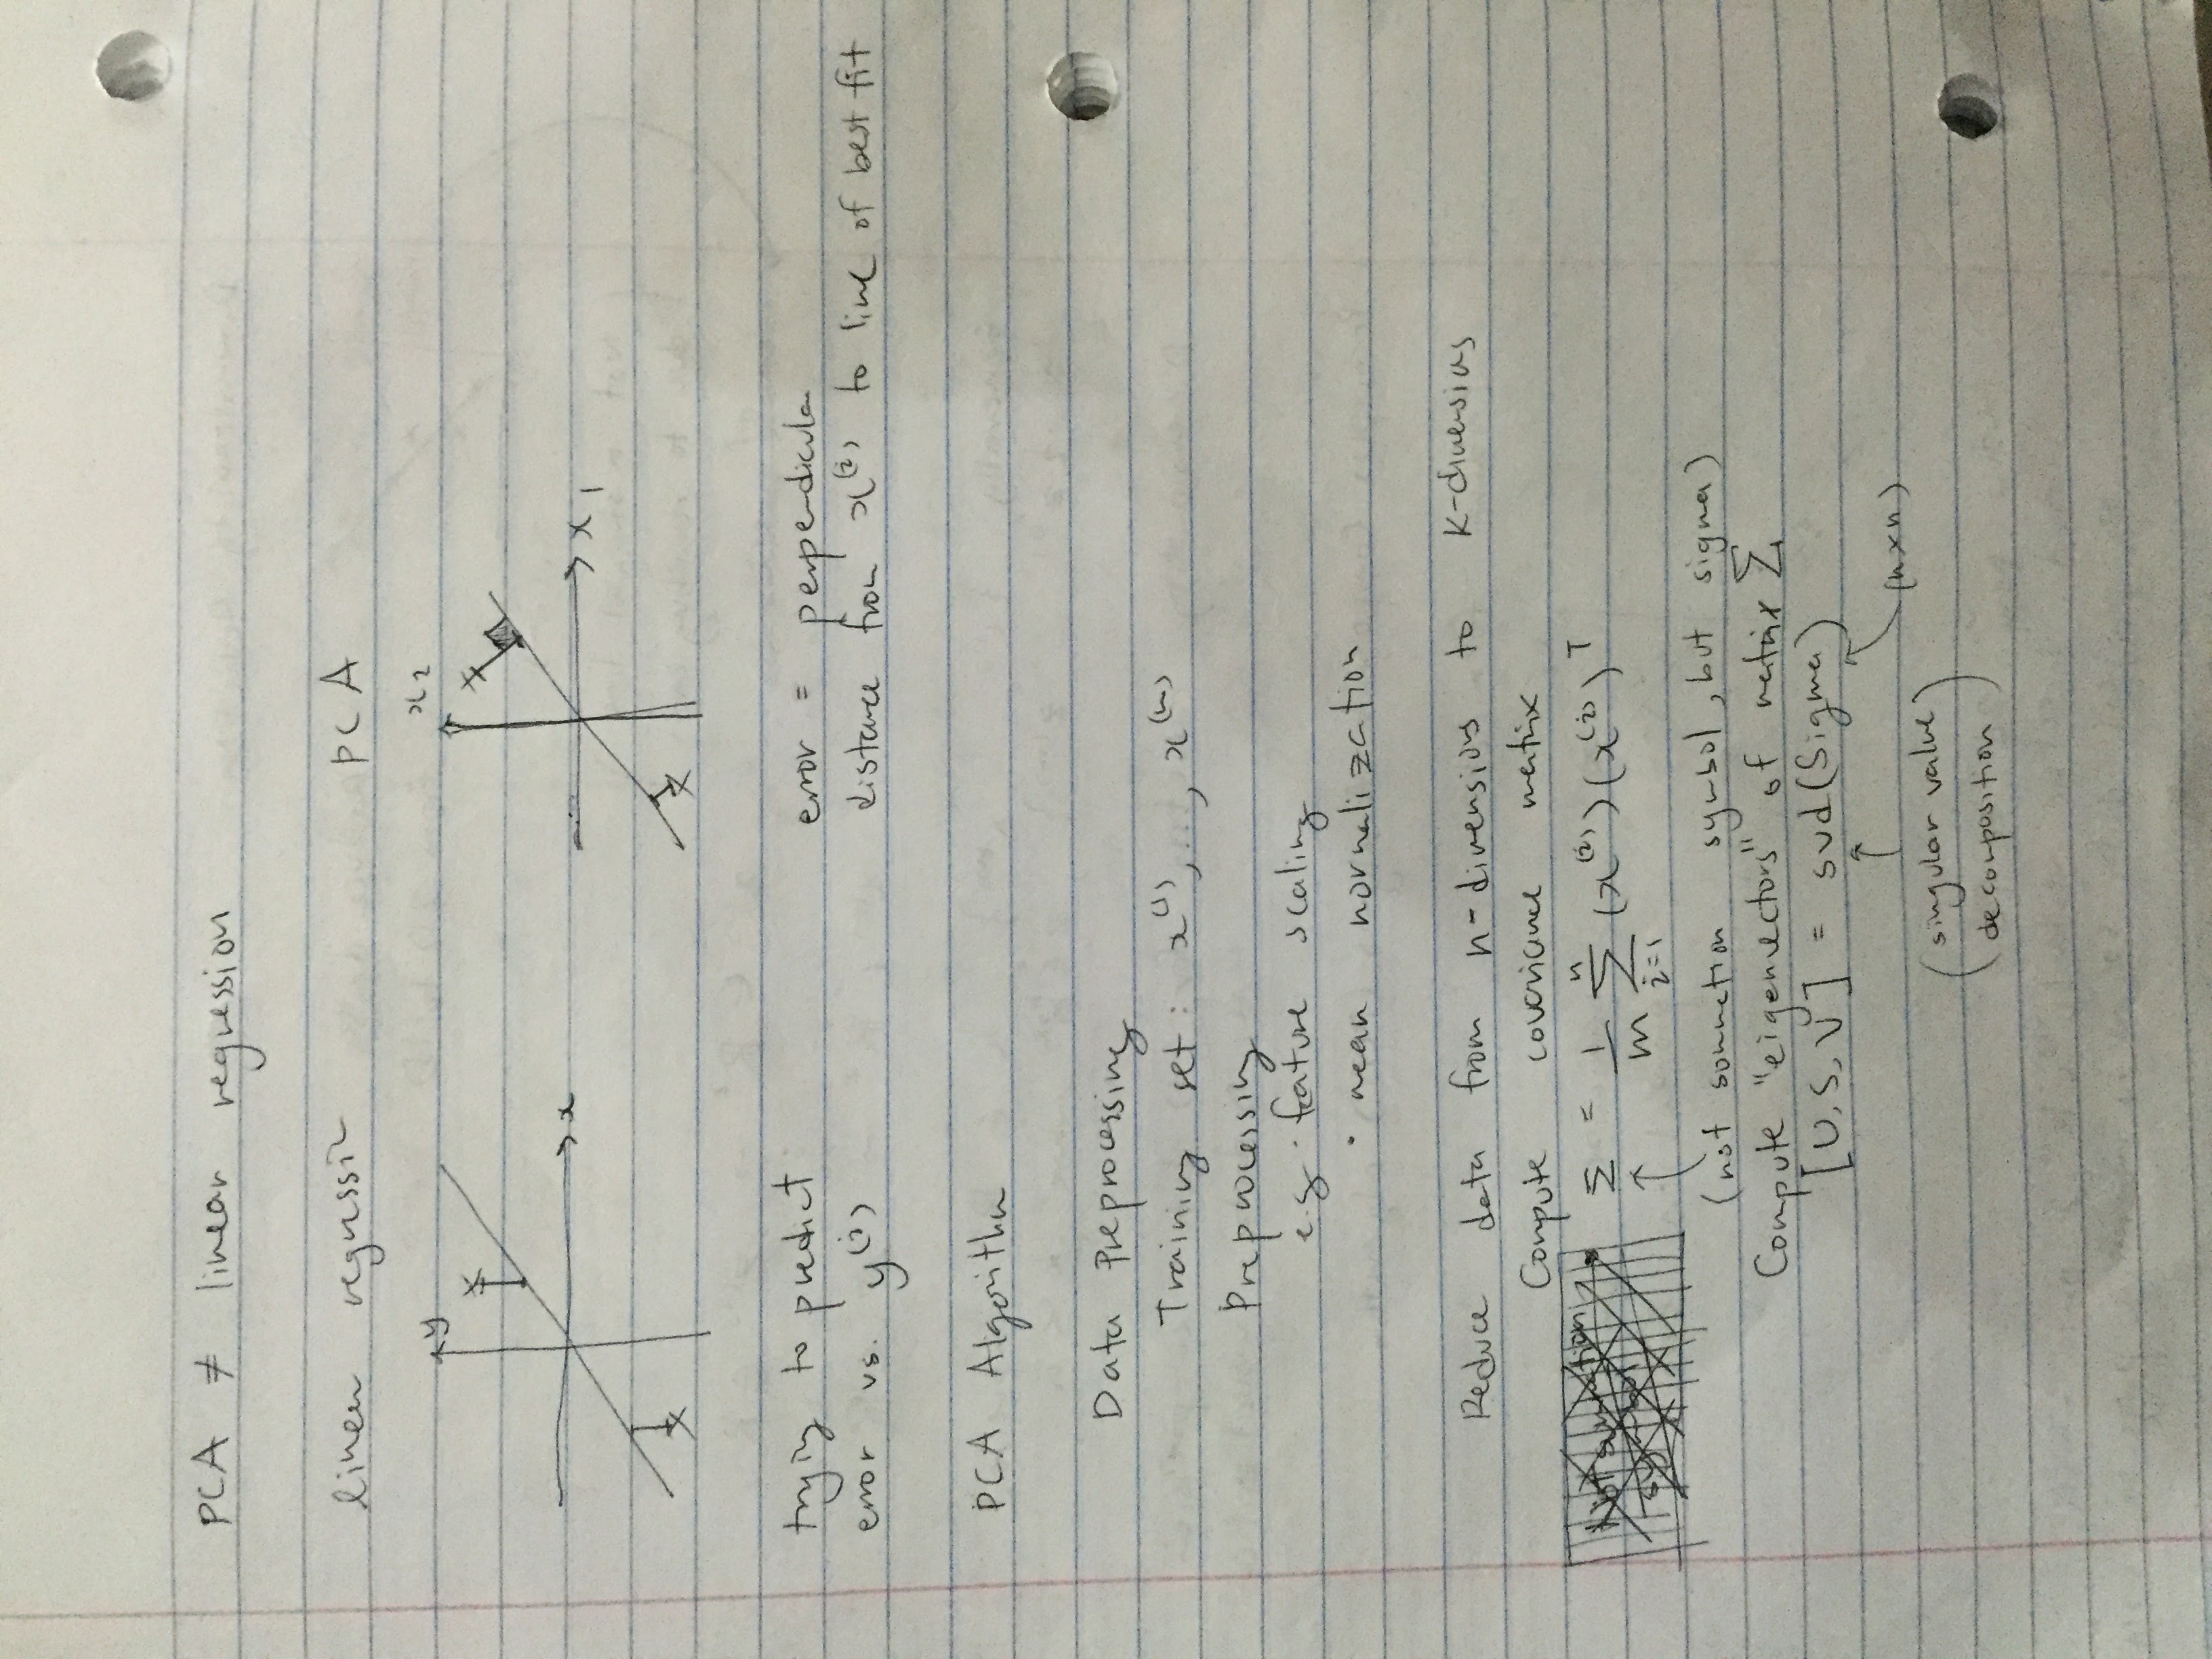 PCA ≠ linear regression
linear regression PCA
y x2
x x1
trying to predict error = perpendicular
error vs. y(i) distance from x(i) to line of best fit
PCA Algorithm
Data Preprocessing
Training set: x(1), ..., x(m)
Preprocessing
e.g. · feature scaling
· mean normalization
Reduce data from n-dimensions to k-dimensions
Compute covariance matrix
Not summation
symbol
Σ = 1/m n Σ i=1 (x(i))(x(i))T
(not summation symbol, but sigma)
Compute "eigenvectors" of matrix Σ
[U, S, V] = svd(Sigma)
(n×n)
(singular value
decomposition)